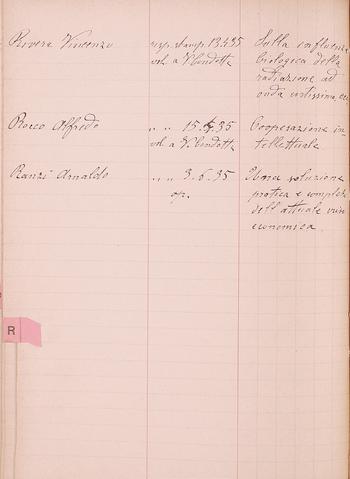 Rivera Vincenzo
risp. stamp. 13.4.35
vol. a V. Condotti
Sulla influenza
biologica della
radiazione ad
onda cortissima, ecc
Rocco Alfredo
" " 15.4.35
vol. a V. Condotti
Cooperazione in-
tellettuale
Ranzi Arnaldo
" " 3.6.35
op.
Una soluzione
pratica e completa
dell'attuale crisi
economica.
R